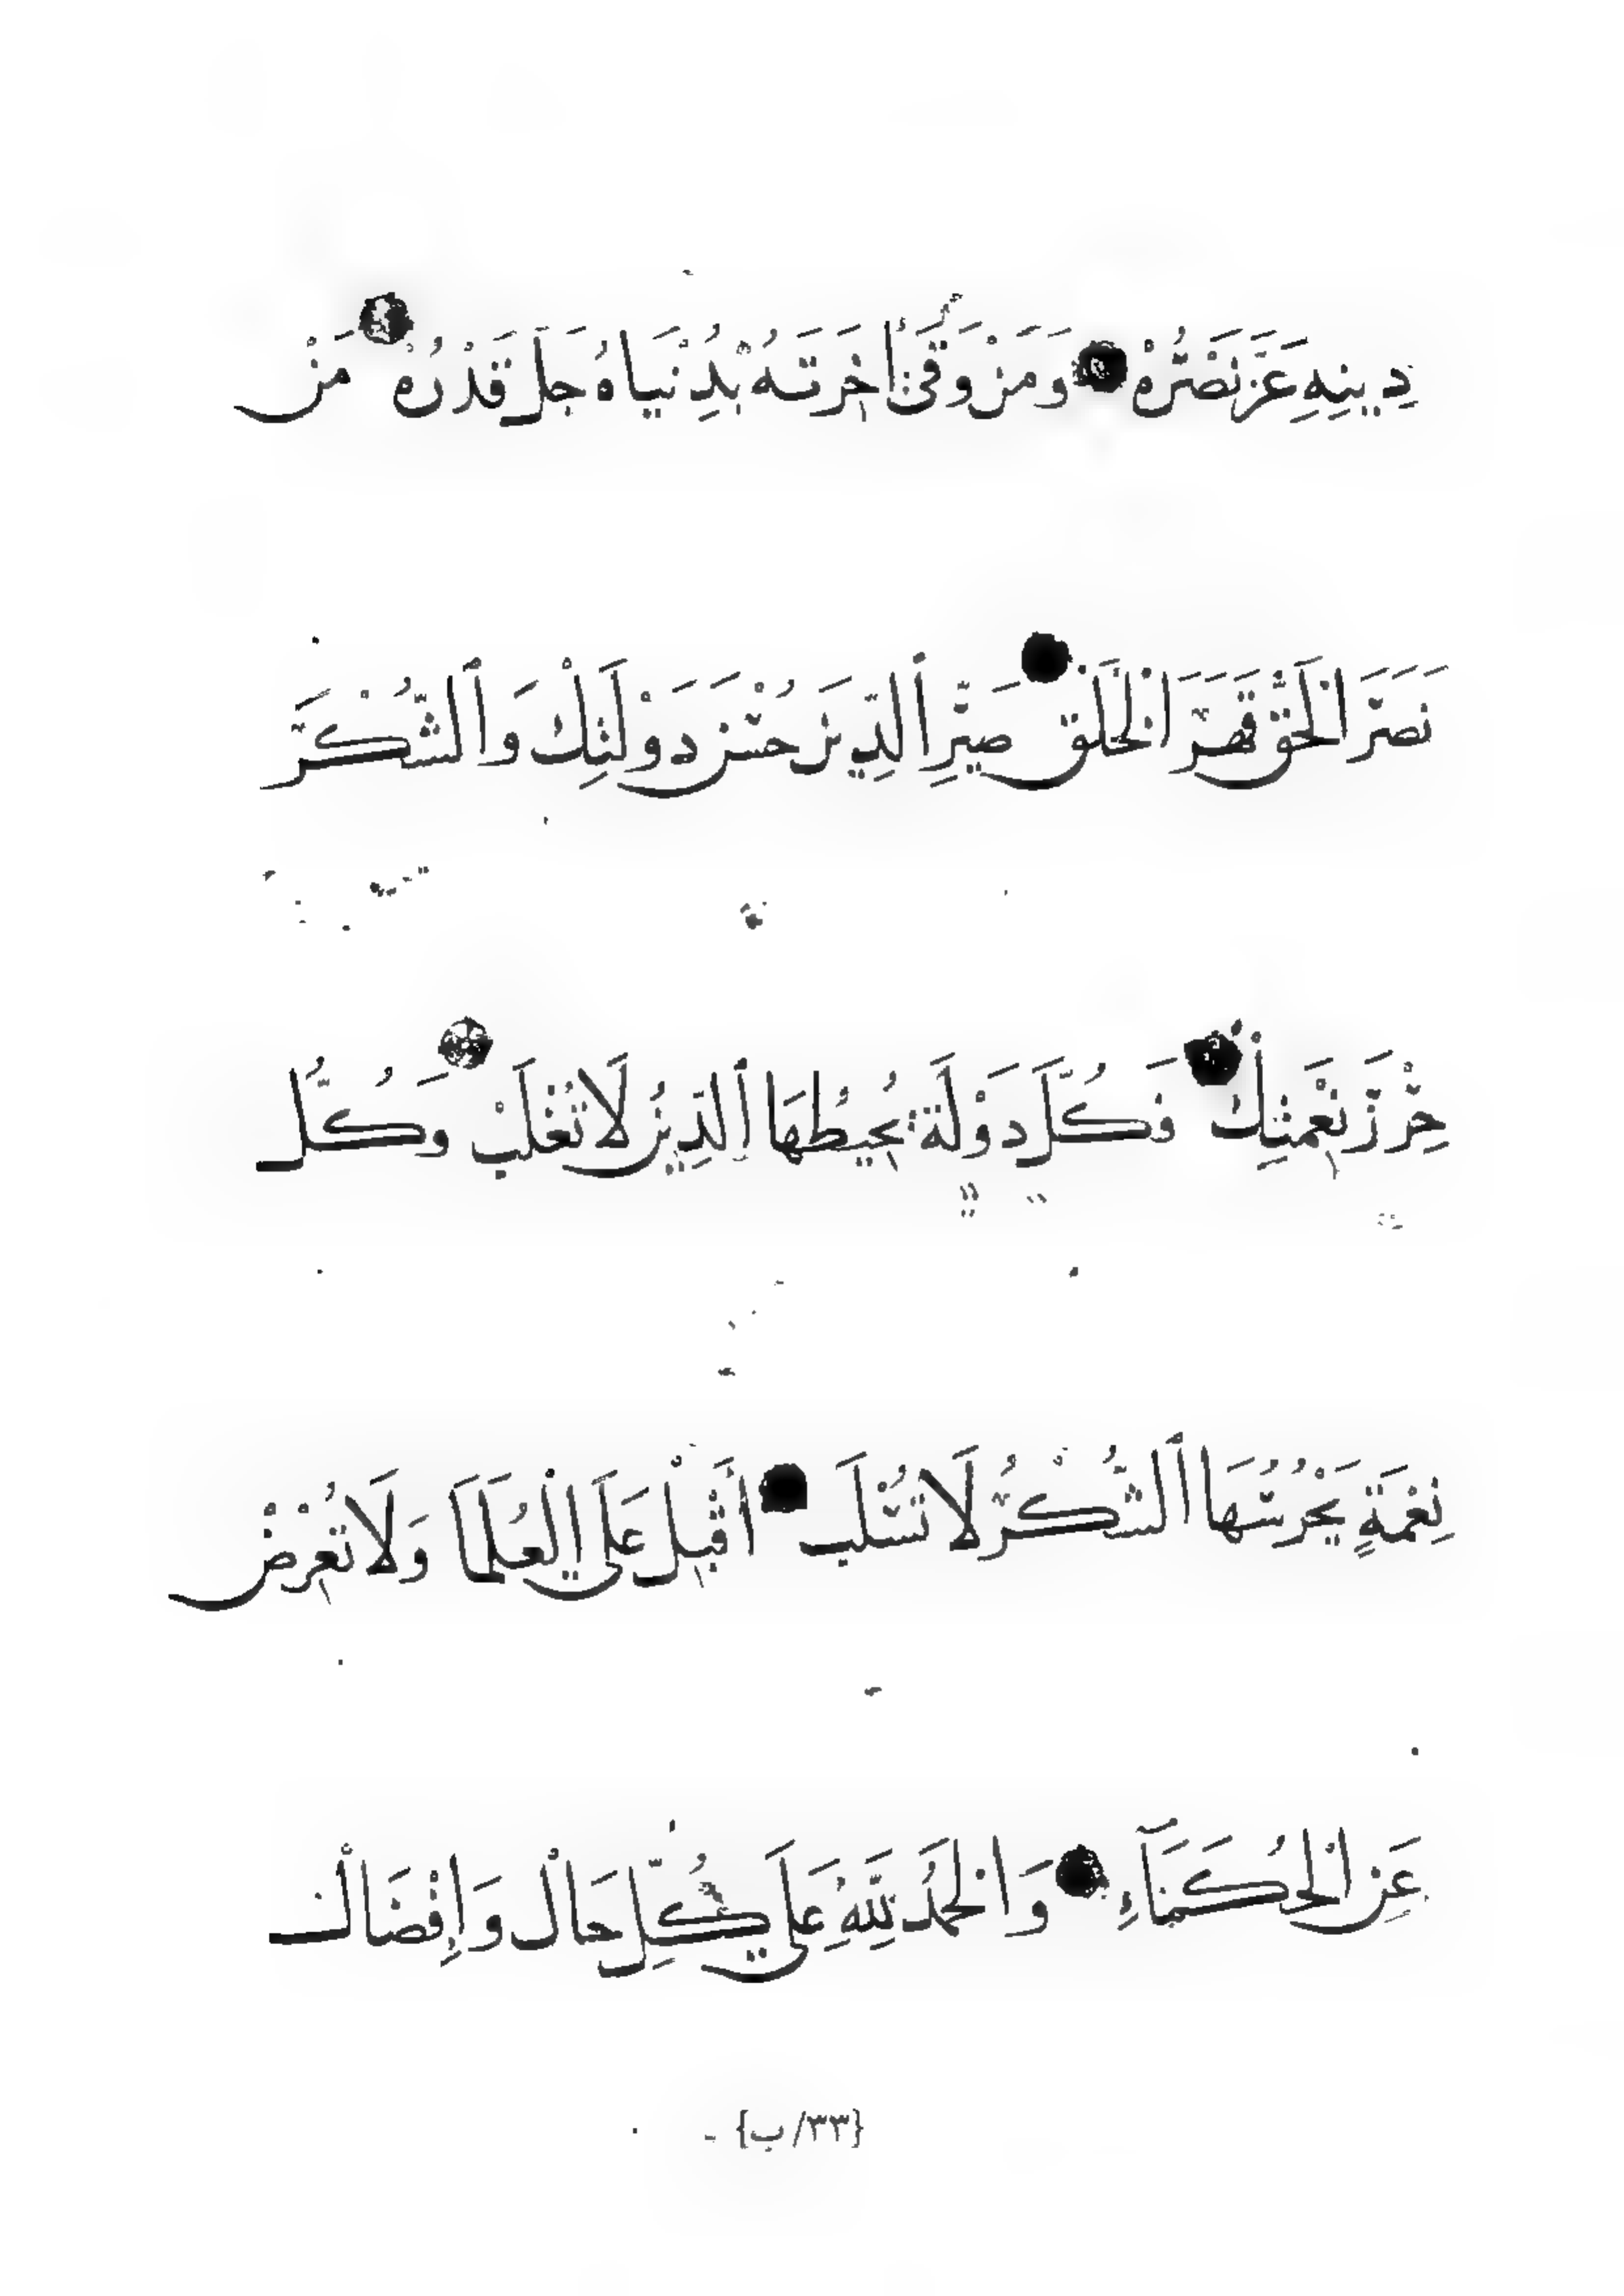 دِينِهِ عَزَّ نَصْرُهُ وَمَنْ وَقَىٰ آخِرَتَهُ بِدُنْيَاهُ جَلَّ قَدْرُهُ مَنْ
نَصَرَ الْحَقَّ قَهَرَ الْخَلْقَ صَيِّرِ الدِّينَ حُسْنَ دَوْلَتِكَ وَالشُّكْرَ
حِرْزَ نِعْمَتِكَ فَكُلُّ دَوْلَةٍ يُحِيطُهَا الدِّينُ لَا تُغْلَبْ وَكُلُّ
نِعْمَةٍ يَحْرُسُهَا الشُّكْرُ لَا تُسْلَب أَقْبِلْ عَلَى الْعُلَمَا وَلَا تُعْرِضْ
عَنِ الْحُكَمَآءِ وَالْحَمْدُ لِلَّهِ عَلَى كُلِّ حَالْ وَإِفْضَالْ
{٣٣/ب}